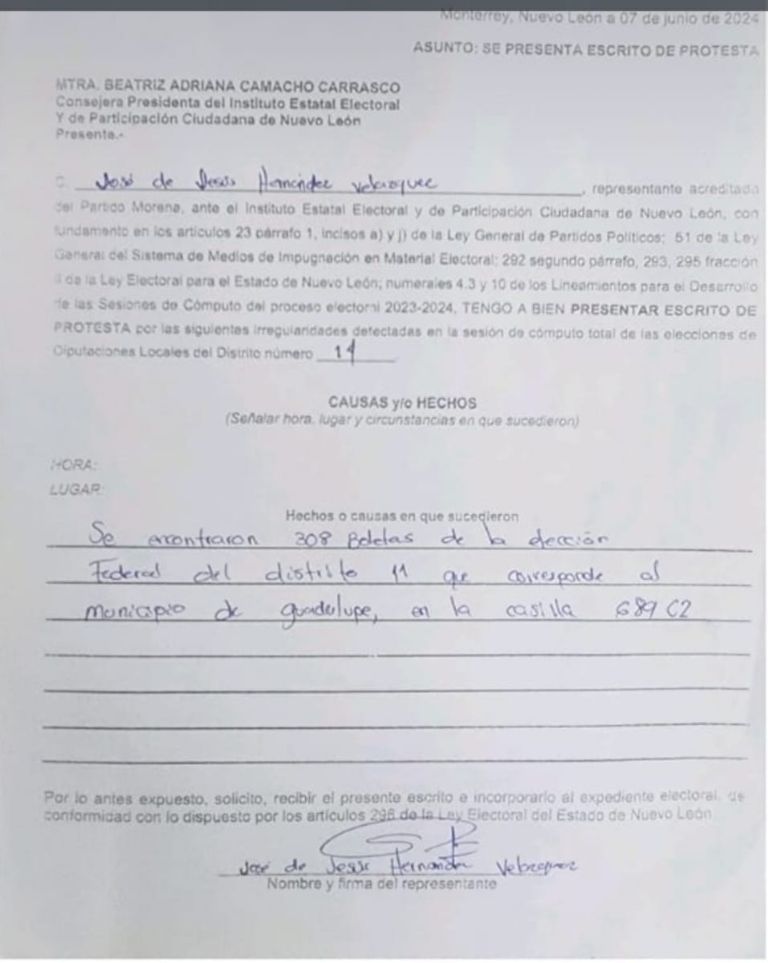 Monterrey, Nuevo León a 07 de junio de 2024
ASUNTO: SE PRESENTA ESCRITO DE PROTESTA
MTRA. BEATRIZ ADRIANA CAMACHO CARRASCO
Consejera Presidenta del Instituto Estatal Electoral
Y de Participación Ciudadana de Nuevo León
Presente.-
C. José de Jesús Hernández Velazquez, representante acreditado
del Partido Morena, ante el Instituto Estatal Electoral y de Participación Ciudadana de Nuevo León, con
fundamento en los artículos 23 párrafo 1, incisos a) y j) de la Ley General de Partidos Políticos; 51 de la Ley
General del Sistema de Medios de Impugnación en Material Electoral; 292 segundo párrafo, 293, 295 fracción
II de la Ley Electoral para el Estado de Nuevo León; numerales 4.3 y 10 de los Lineamientos para el Desarrollo
de las Sesiones de Cómputo del proceso electoral 2023-2024, TENGO A BIEN PRESENTAR ESCRITO DE
PROTESTA por las siguientes irregularidades detectadas en la sesión de cómputo total de las elecciones de
Diputaciones Locales del Distrito número
CAUSAS y/o HECHOS
(Señalar hora, lugar y circunstancias en que sucedieron)
HORA:
LUGAR:
Hechos o causas en que sucedieron
Se encontraron 308 Boletas de la elección
Federal del distrito 11 que corresponde al
municipio de guadalupe, en la casilla 689 C2
Por lo antes expuesto, solicito, recibir el presente escrito e incorporarlo al expediente electoral, de
conformidad con lo dispuesto por los artículos 296 de la Ley Electoral del Estado de Nuevo León
José de Jesús Hernandez Velazquez
Nombre y firma del representante